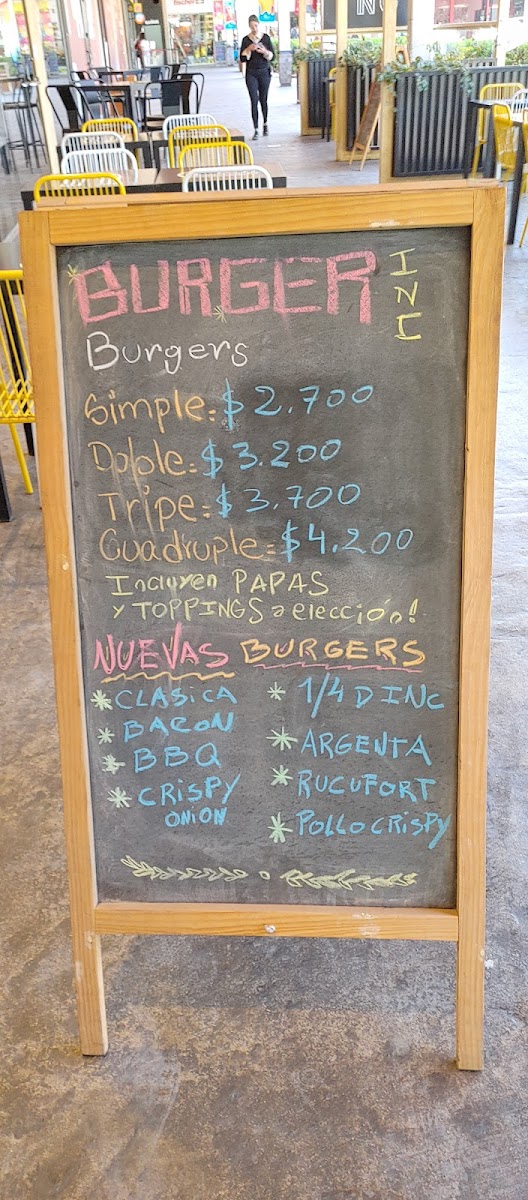 BURGER INC
Burgers
Simple: $2.700
Doble: $3.200
Tripe: $3.700
Cuadruple: $4.200
Incluyen PAPAS
y TOPPINGS a elección!
NUEVAS BURGERS
* CLASICA
* BACON
* BBQ
* CRISPY
ONION
* 1/4 D INC
* ARGENTA
* RUCUFORT
* POLLO CRISPY